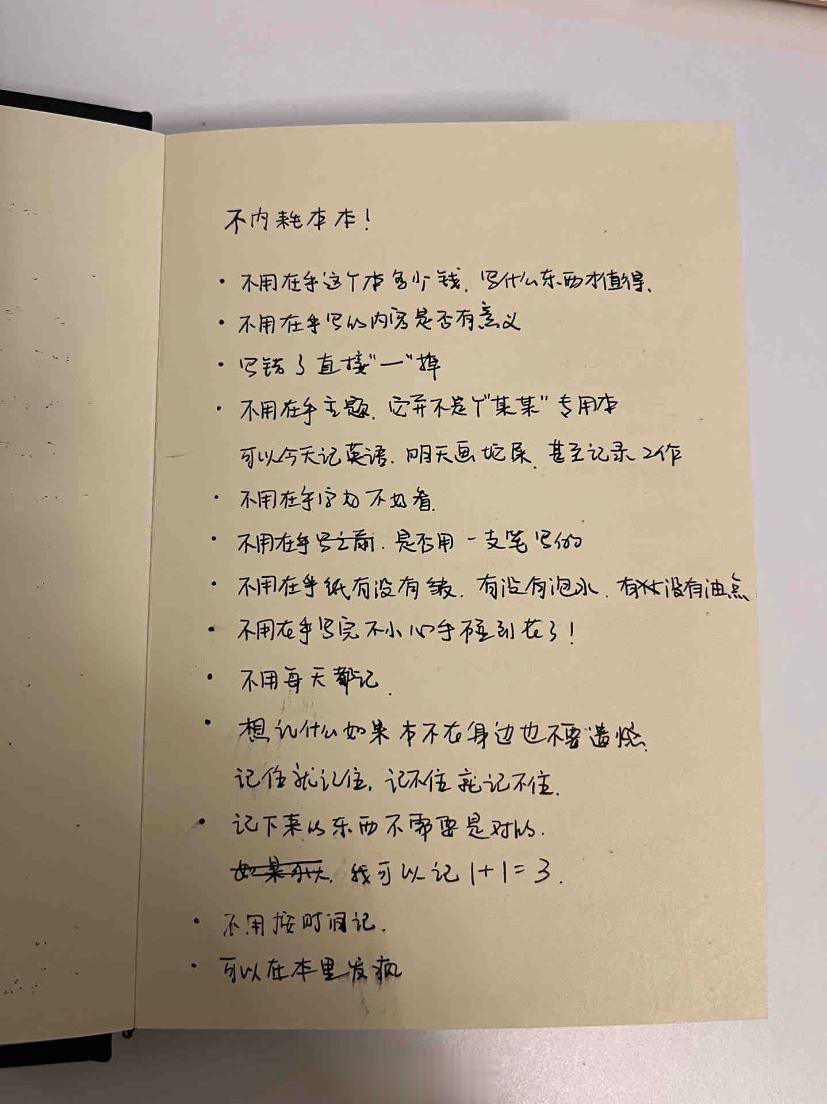 不内耗本本！
· 不用在乎这个本多少钱，写什么东西才值得、
· 不用在乎写的内容是否有意义
· 写错了直接“一”掉
· 不用在乎主题，它并不是个“某某”专用本
可以今天记英语，明天画坨屎，甚至记录工作
· 不用在乎字好不好看，
· 不用在乎写之前，是否用一支笔写的
· 不用在乎纸有没有皱，有没有泡水，有没有油点
· 不用在乎写完不小心手碰到花了！
· 不用每天都记，
· 想记什么如果本不在身边也不要遗憾，
记住就记住，记不住就记不住，
· 记下来的东西不需要是对的，
如果 我可以记1+1=3.
· 不用按时间记.
· 可以在本里发疯